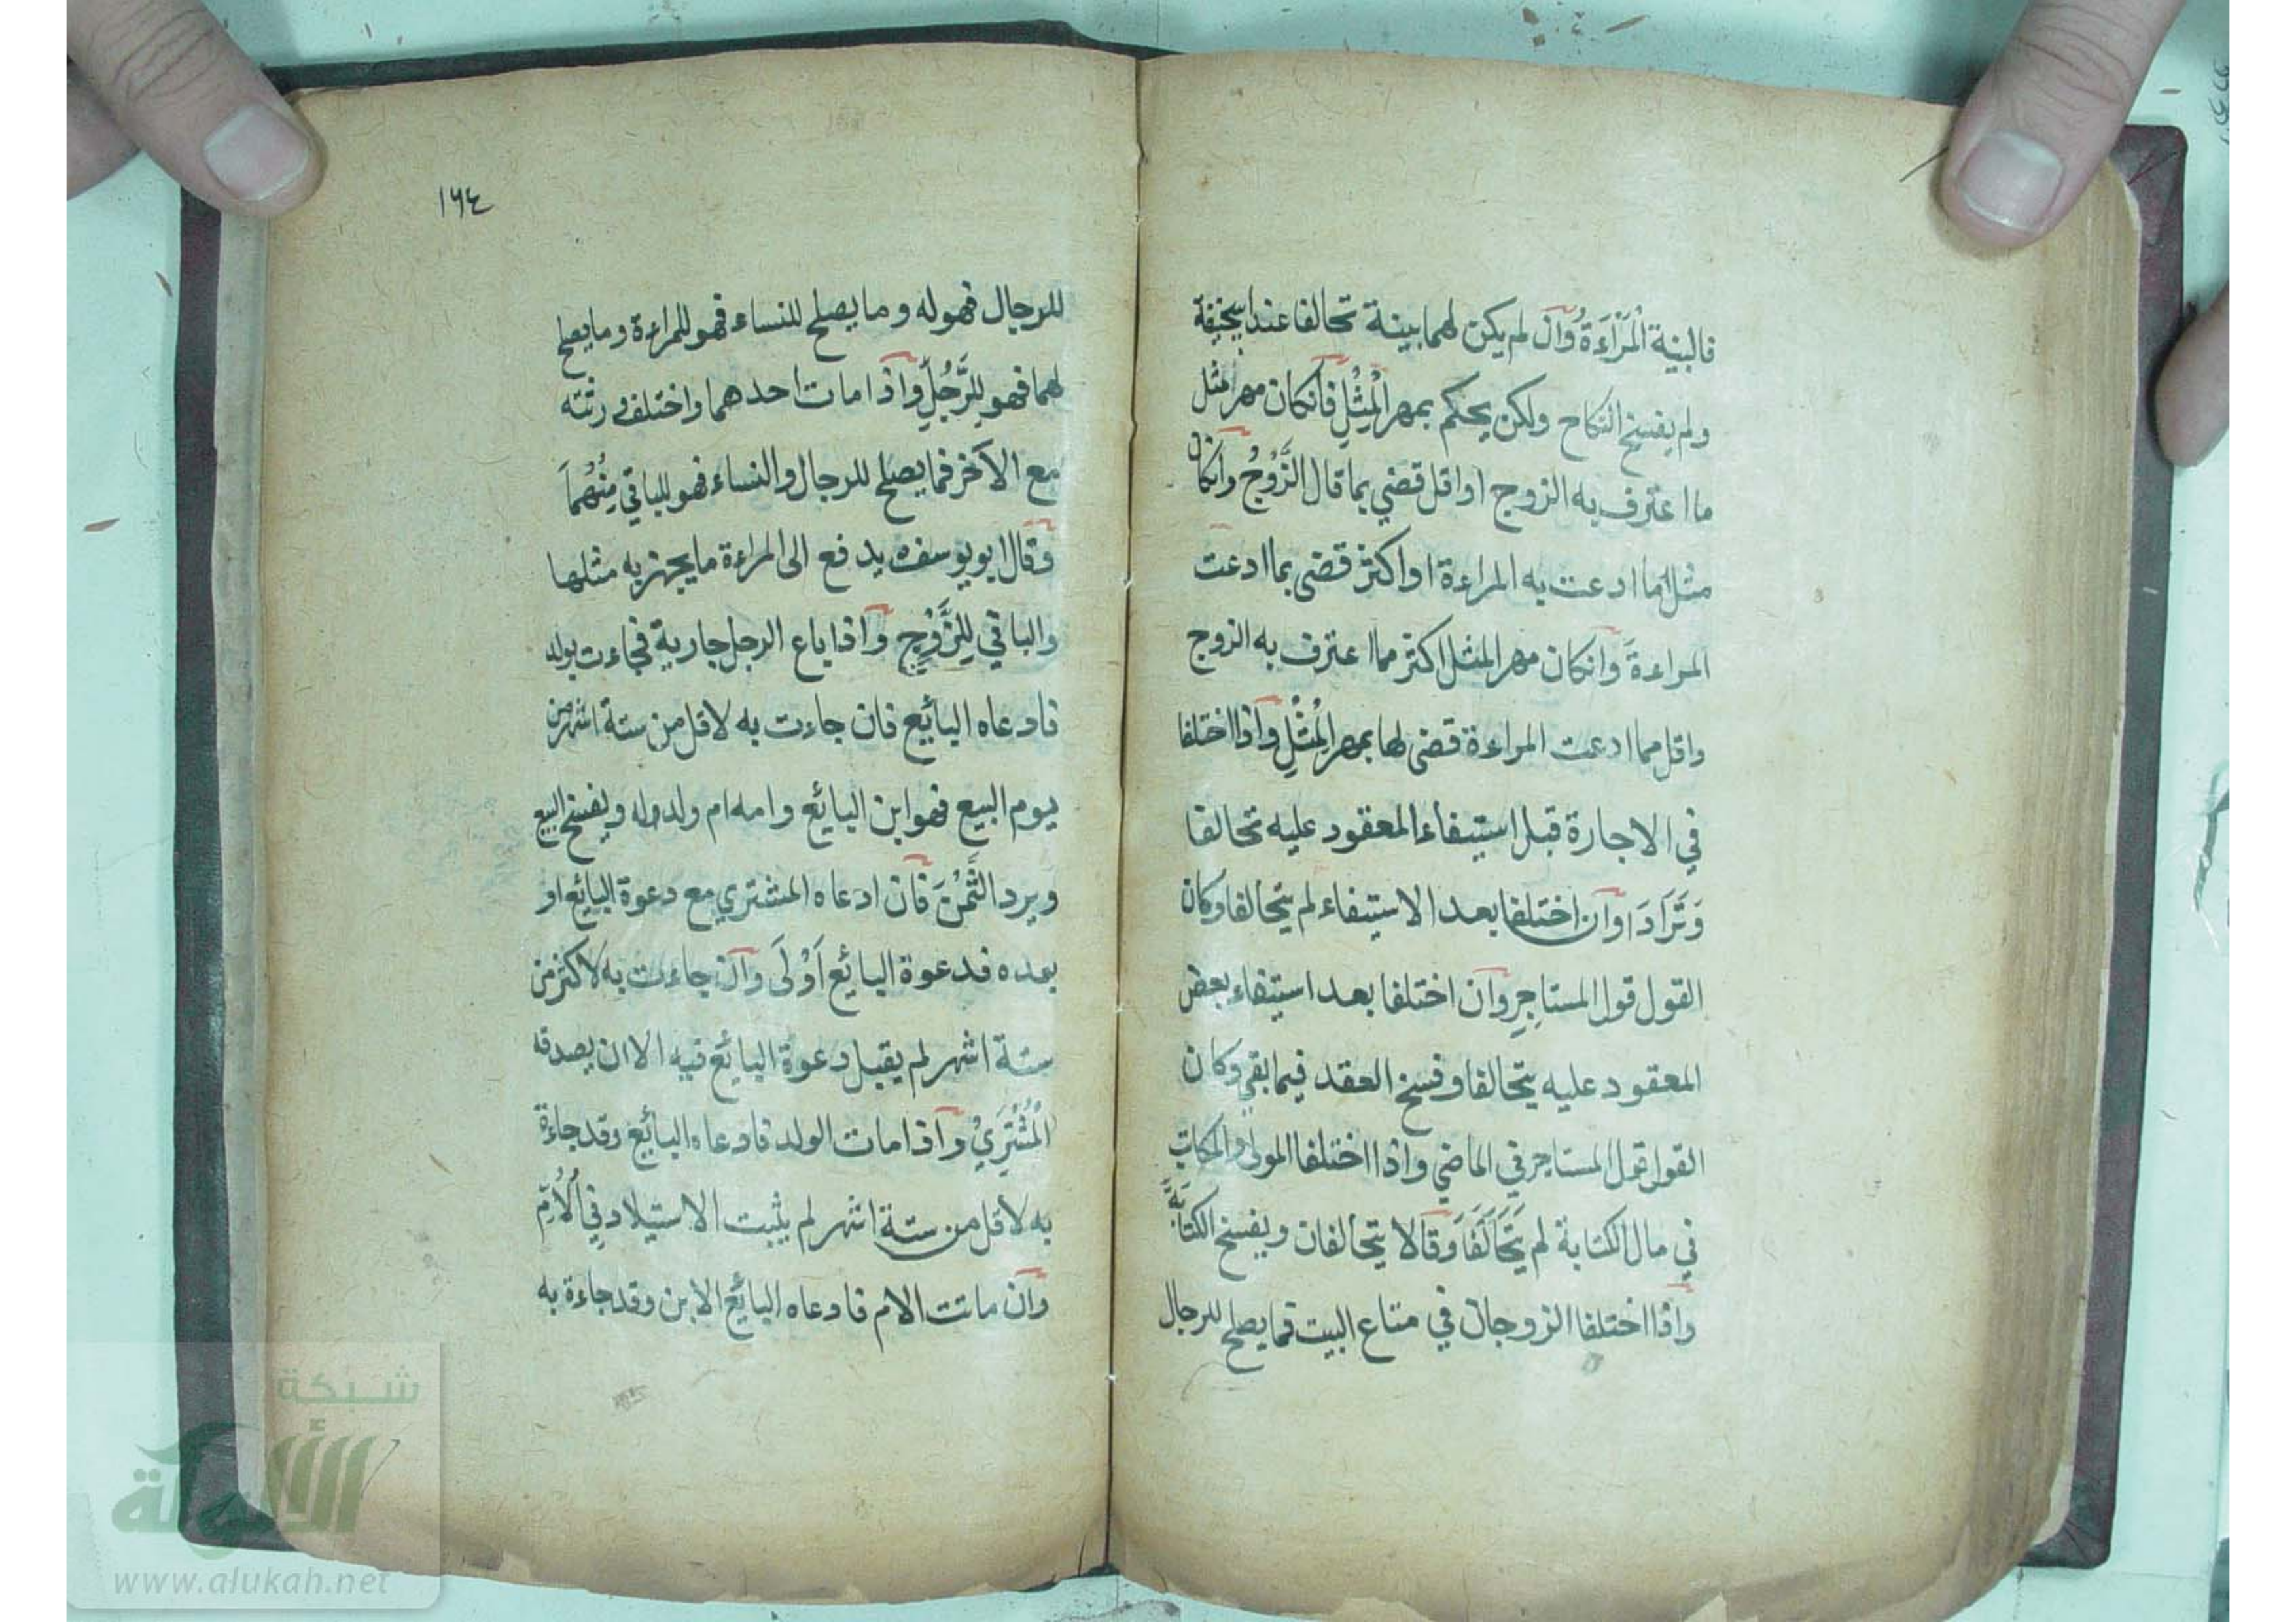 فالبينة الْمَرْاَءةُ وآن لم يكن لهما بينة تحالفا عند ابيحنيفة
ولم يفسخ النكاح ولكن يحكم بمهر الْمِثْلِ فآنكان مهر مثل
ما اعترف به الزوج او اقل قضي بما قال الزَّوْجُ وآنكان
مثل ما ادعت به المراءة او اكثر قضى بما ادعت
المراءةَ وآنكان مهر المثل اكثر مما اعترف به الزوج
واقل مما ادعت المراءة قضى لها بمهر الْمِثْلِ وآذا اختلفا
في الاجارة قبل استيفاء المعقود عليه تحالفا
وَتَرَادَا وآن اختلفا بعد الاستيفاء لم يتحالفا وكان
القول قول المستاجِرِ وآن اختلفا بعد استيفاء بعض
المعقود عليه يتحالفا وفسخ العقد فيما بقي وكان
القول قول المستاجر في الماضي واذا اختلفا المولى والمكاتب
في مال الكتابة لم يَتَحَالَفَا وَقَالا يتحالفان ويفسخ الكتابة
وآذا اختلفا الزوجان في متاع البيت فما يصلح للرجال
١٦٤
للرجال فهو له وما يصلح للنساء فهو للمراءة وما يصلح
لهما فهو لِلرَّجُلِ وآذا مات احدهما واختلف ورثته
مع الآخر فما يصلح للرجال والنساء فهو للباقي مِنْهُمَا
وقال ابو يوسف ه يدفع الى المراءة ما يجهز به مثلها
والباقي لِلزَّوْجِ وآذا باع الرجل جارية فجاءت بولد
فادعاه البائع فان جاءت به لاقل من ستة اشهر من
يوم البيع فهو ابن البائع وامه ام ولد له ويفسخ البيع
ويرد الثَّمَنَ فآن ادعاه المشتري مع دعوة البائع او
بعده فدعوة البائع اَوْلَى وآن جاءت به لاكثر من
ستة اشهر لم يقبل دعوة البائع فيه الا ان يصدقه
الْمُشْتَرِيْ وآذا مات الولد فادعاه البائع وقد جاءة
به لاقل من ستة اشهر لم يثبت الاستيلاد فِي الْاُمِّ
وآن ماتت الام فادعاه البائع الابن وقد جاءة به
شبكة
الألوكة
www.alukah.net